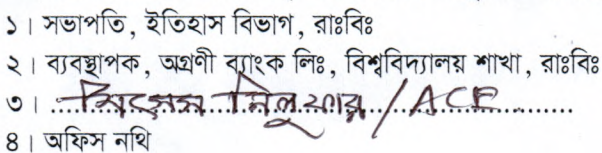 ১। সভাপতি, ইতিহাস বিভাগ, রাঃবিঃ
২। ব্যবস্থাপক, অগ্রণী ব্যাংক লিঃ, বিশ্ববিদ্যালয় শাখা, রাঃবিঃ
৩। মিসেস নিলুফার / ACE
৪। অফিস নথি